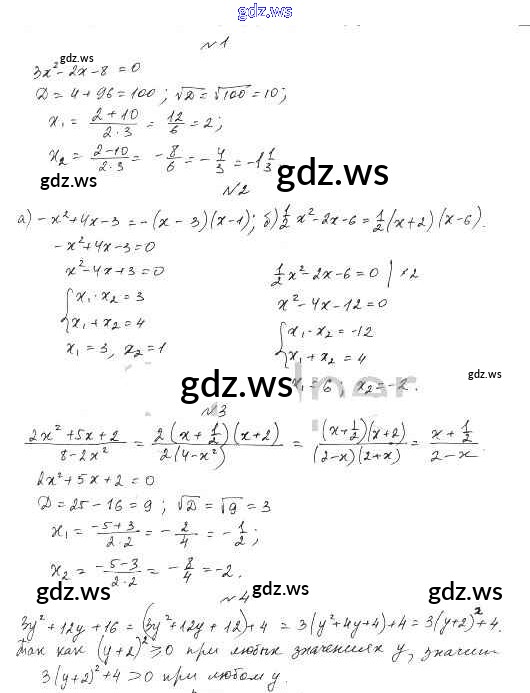 gdz.ws
№1
gdz.ws gdz.ws
3x² - 2x - 8 = 0
D = 4 + 96 = 100; √D = √100 = 10;
x₁ = (2+10)/(2·3) = 12/6 = 2;
x₂ = (2-10)/(2·3) = -8/6 = -4/3 = -1 1/3
gdz.ws
№2
а) -x²+4x-3 = -(x-3)(x-1); б) 1/2 x²-2x-6 = 1/2 (x+2)(x-6).
-x²+4x-3=0
x²-4x+3=0 1/2 x²-2x-6=0 | ×2
x₁·x₂=3 x²-4x-12=0
x₁+x₂=4 x₁·x₂=-12
x₁=3, x₂=1 x₁+x₂=4
gdz.ws
x₁=6, x₂=-2.
№3
gdz.ws
(2x²+5x+2)/(8-2x²) = 2(x+1/2)(x+2)/2(4-x²) = (x+1/2)(x+2)/(2-x)(2+x) = (x+1/2)/(2-x).
2x²+5x+2=0
D=25-16=9; √D=√9=3
x₁ = (-5+3)/(2·2) = -2/4 = -1/2;
x₂ = (-5-3)/(2·2) = -8/4 = -2.
gdz.ws gdz.ws
№4
3y²+12y+16=(3y²+12y+12)+4=3(y²+4y+4)+4=3(y+2)²+4.
Так как (y+2)²≥0 при любых значениях y, значит
3(y+2)²+4>0 при любом y.
gdz.ws